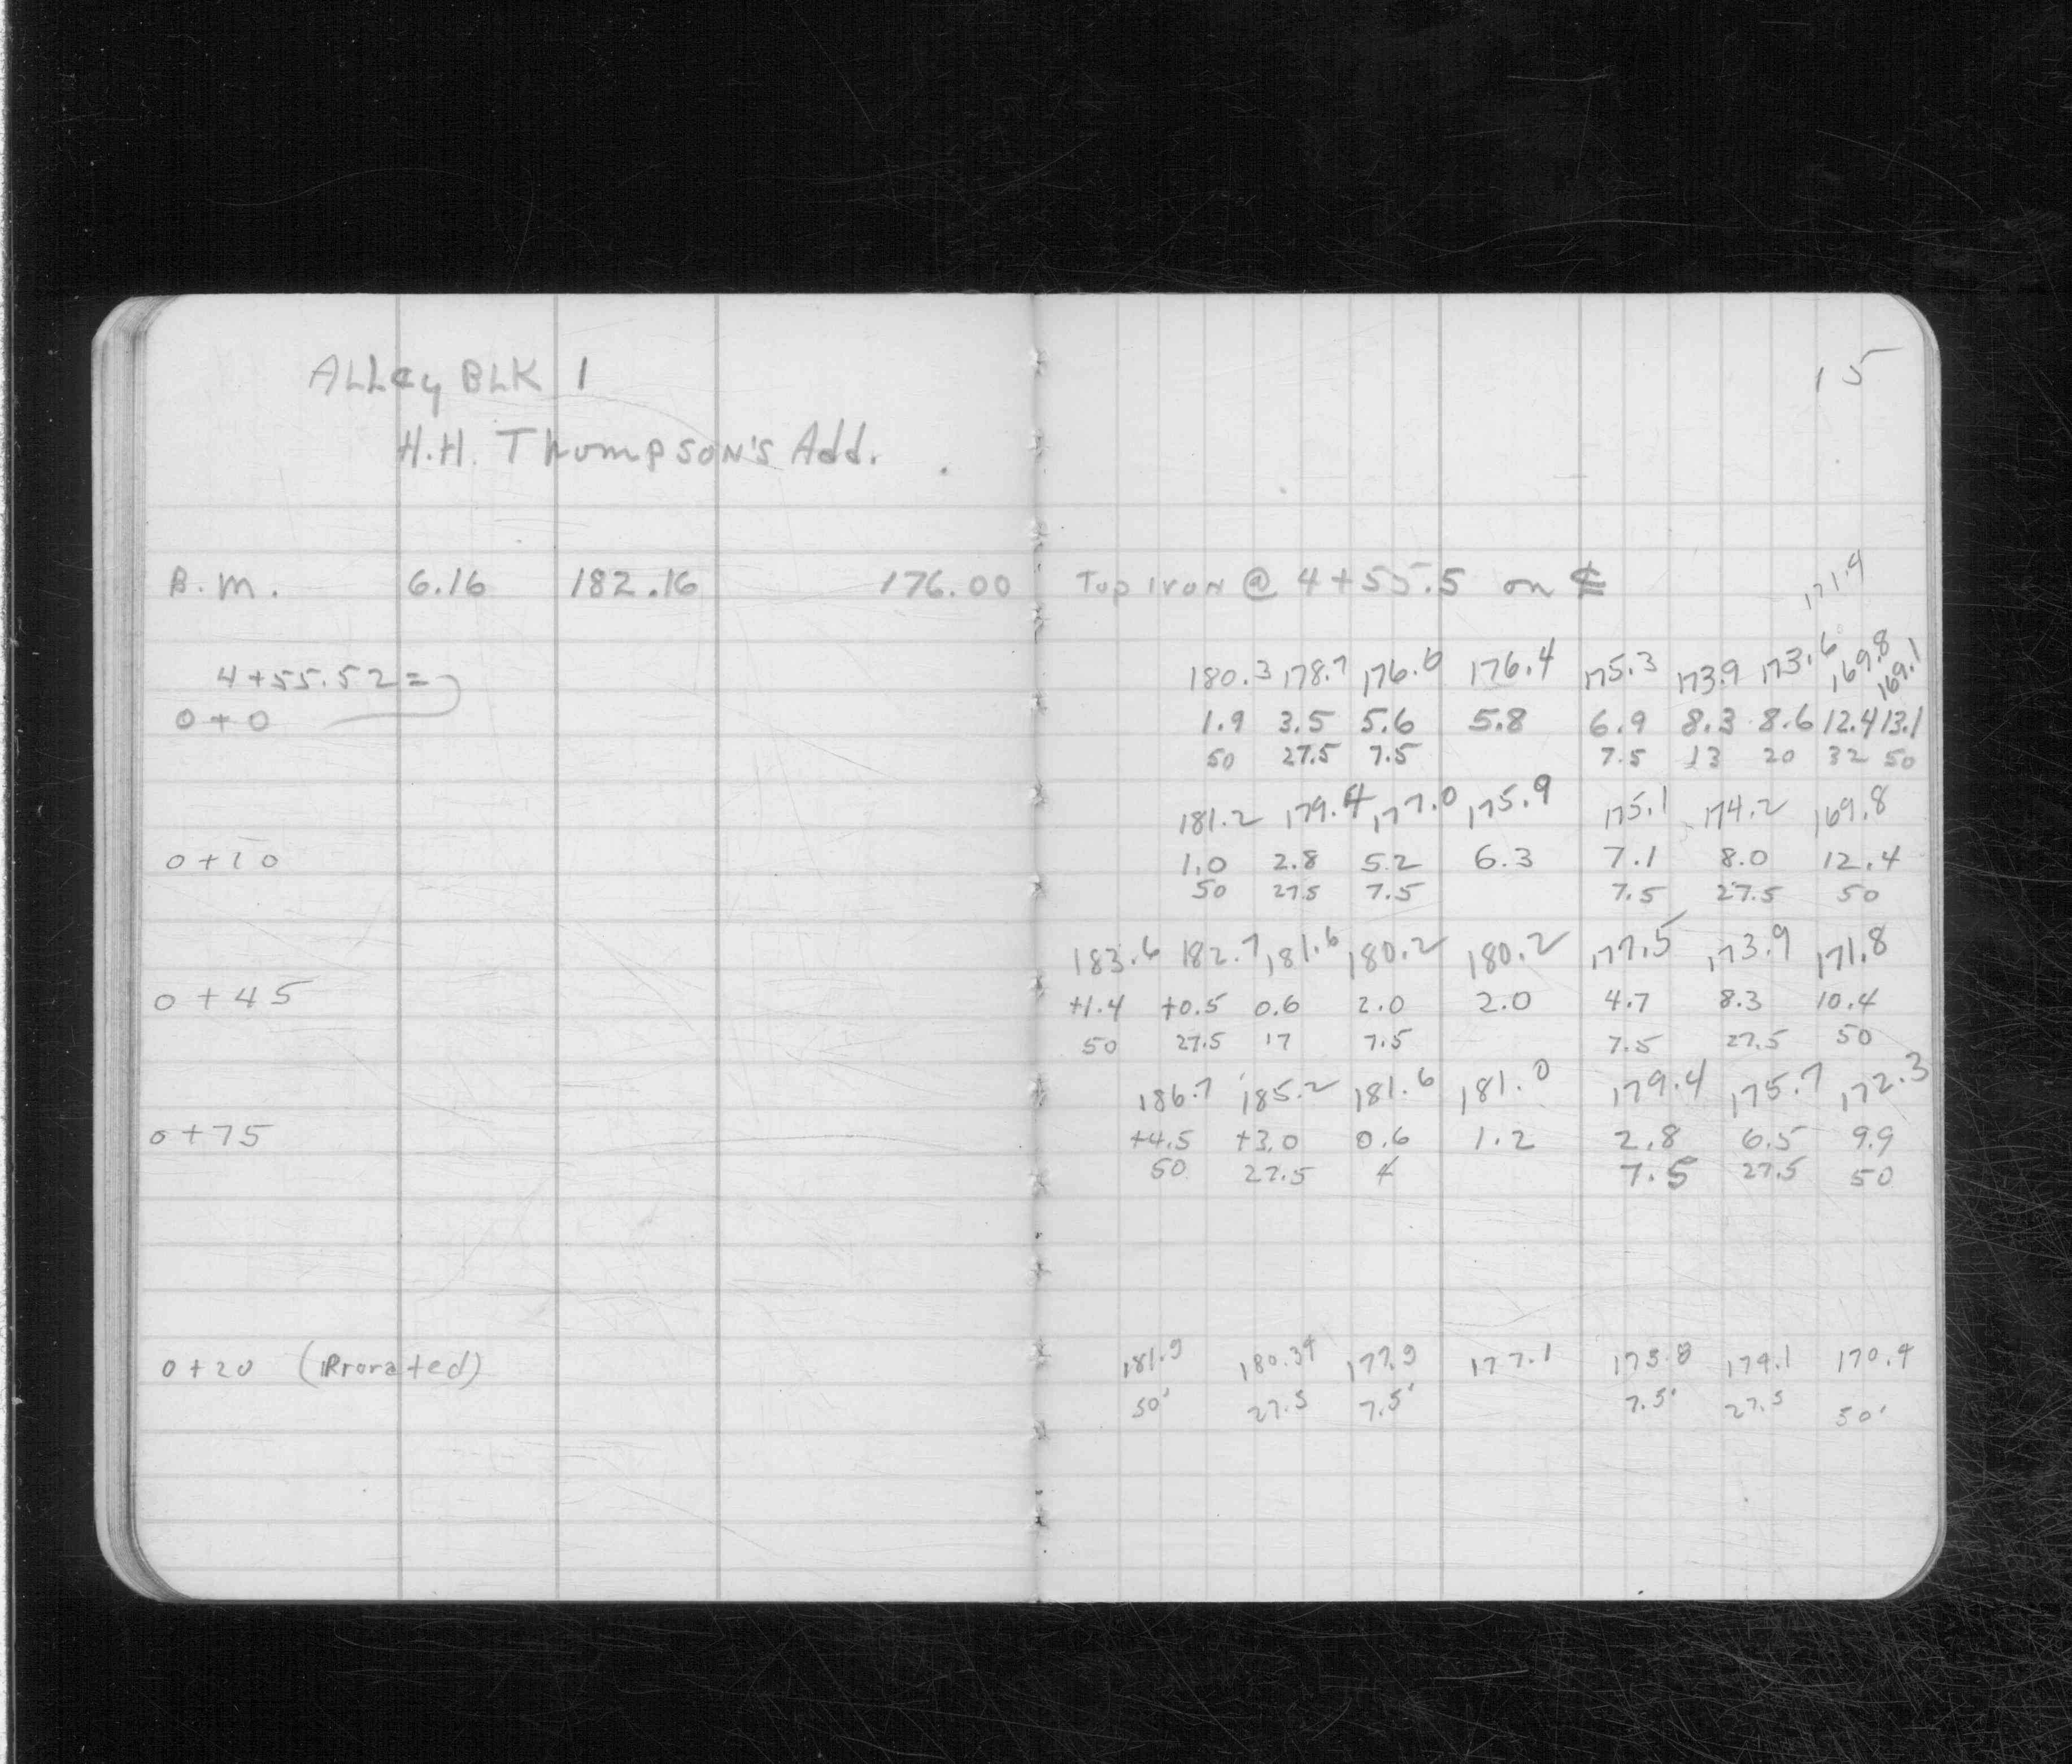 ALLey BLK 1
H.H. Thompson's Add.
15
B.M. 6.16 182.16 176.00 Top Iron @ 4+55.5 on ℄
171.4
4+55.52 =
180.3 178.7 176.6 176.4 175.3 173.9 173.6 169.8 169.1
0+0 1.9 3.5 5.6 5.8 6.9 8.3 8.6 12.4 13.1
50 27.5 7.5 7.5 13 20 32 50
181.2 179.4 177.0 175.9 175.1 174.2 169.8
0+10 1.0 2.8 5.2 6.3 7.1 8.0 12.4
50 27.5 7.5 7.5 27.5 50
183.6 182.7 181.6 180.2 180.2 177.5 173.9 171.8
0+45 +1.4 +0.5 0.6 2.0 2.0 4.7 8.3 10.4
50 27.5 17 7.5 7.5 27.5 50
186.7 185.2 181.6 181.0 179.4 175.7 172.3
0+75 +4.5 +3.0 0.6 1.2 2.8 6.5 9.9
50 27.5 4 7.5 27.5 50
0+20 (Prorated) 181.9 180.34 177.9 177.1 175.8 174.1 170.4
50' 27.5 7.5' 7.5' 27.5 50'